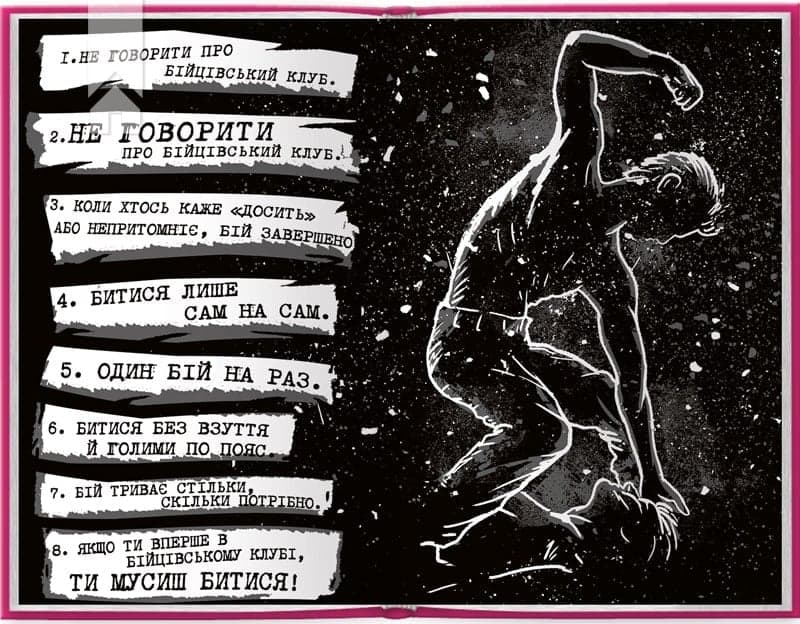 1. НЕ ГОВОРИТИ ПРО
БІЙЦІВСЬКИЙ КЛУБ.
2. НЕ ГОВОРИТИ
ПРО БІЙЦІВСЬКИЙ КЛУБ.
3. КОЛИ ХТОСЬ КАЖЕ «ДОСИТЬ»
АБО НЕПРИТОМНІЄ, БІЙ ЗАВЕРШЕНО
4. БИТИСЯ ЛИШЕ
САМ НА САМ.
5. ОДИН БІЙ НА РАЗ.
6. БИТИСЯ БЕЗ ВЗУТТЯ
Й ГОЛИМИ ПО ПОЯС.
7. БІЙ ТРИВАЄ СТІЛЬКИ,
СКІЛЬКИ ПОТРІБНО.
8. ЯКЩО ТИ ВПЕРШЕ В
БІЙЦІВСЬКОМУ КЛУБІ,
ТИ МУСИШ БИТИСЯ!